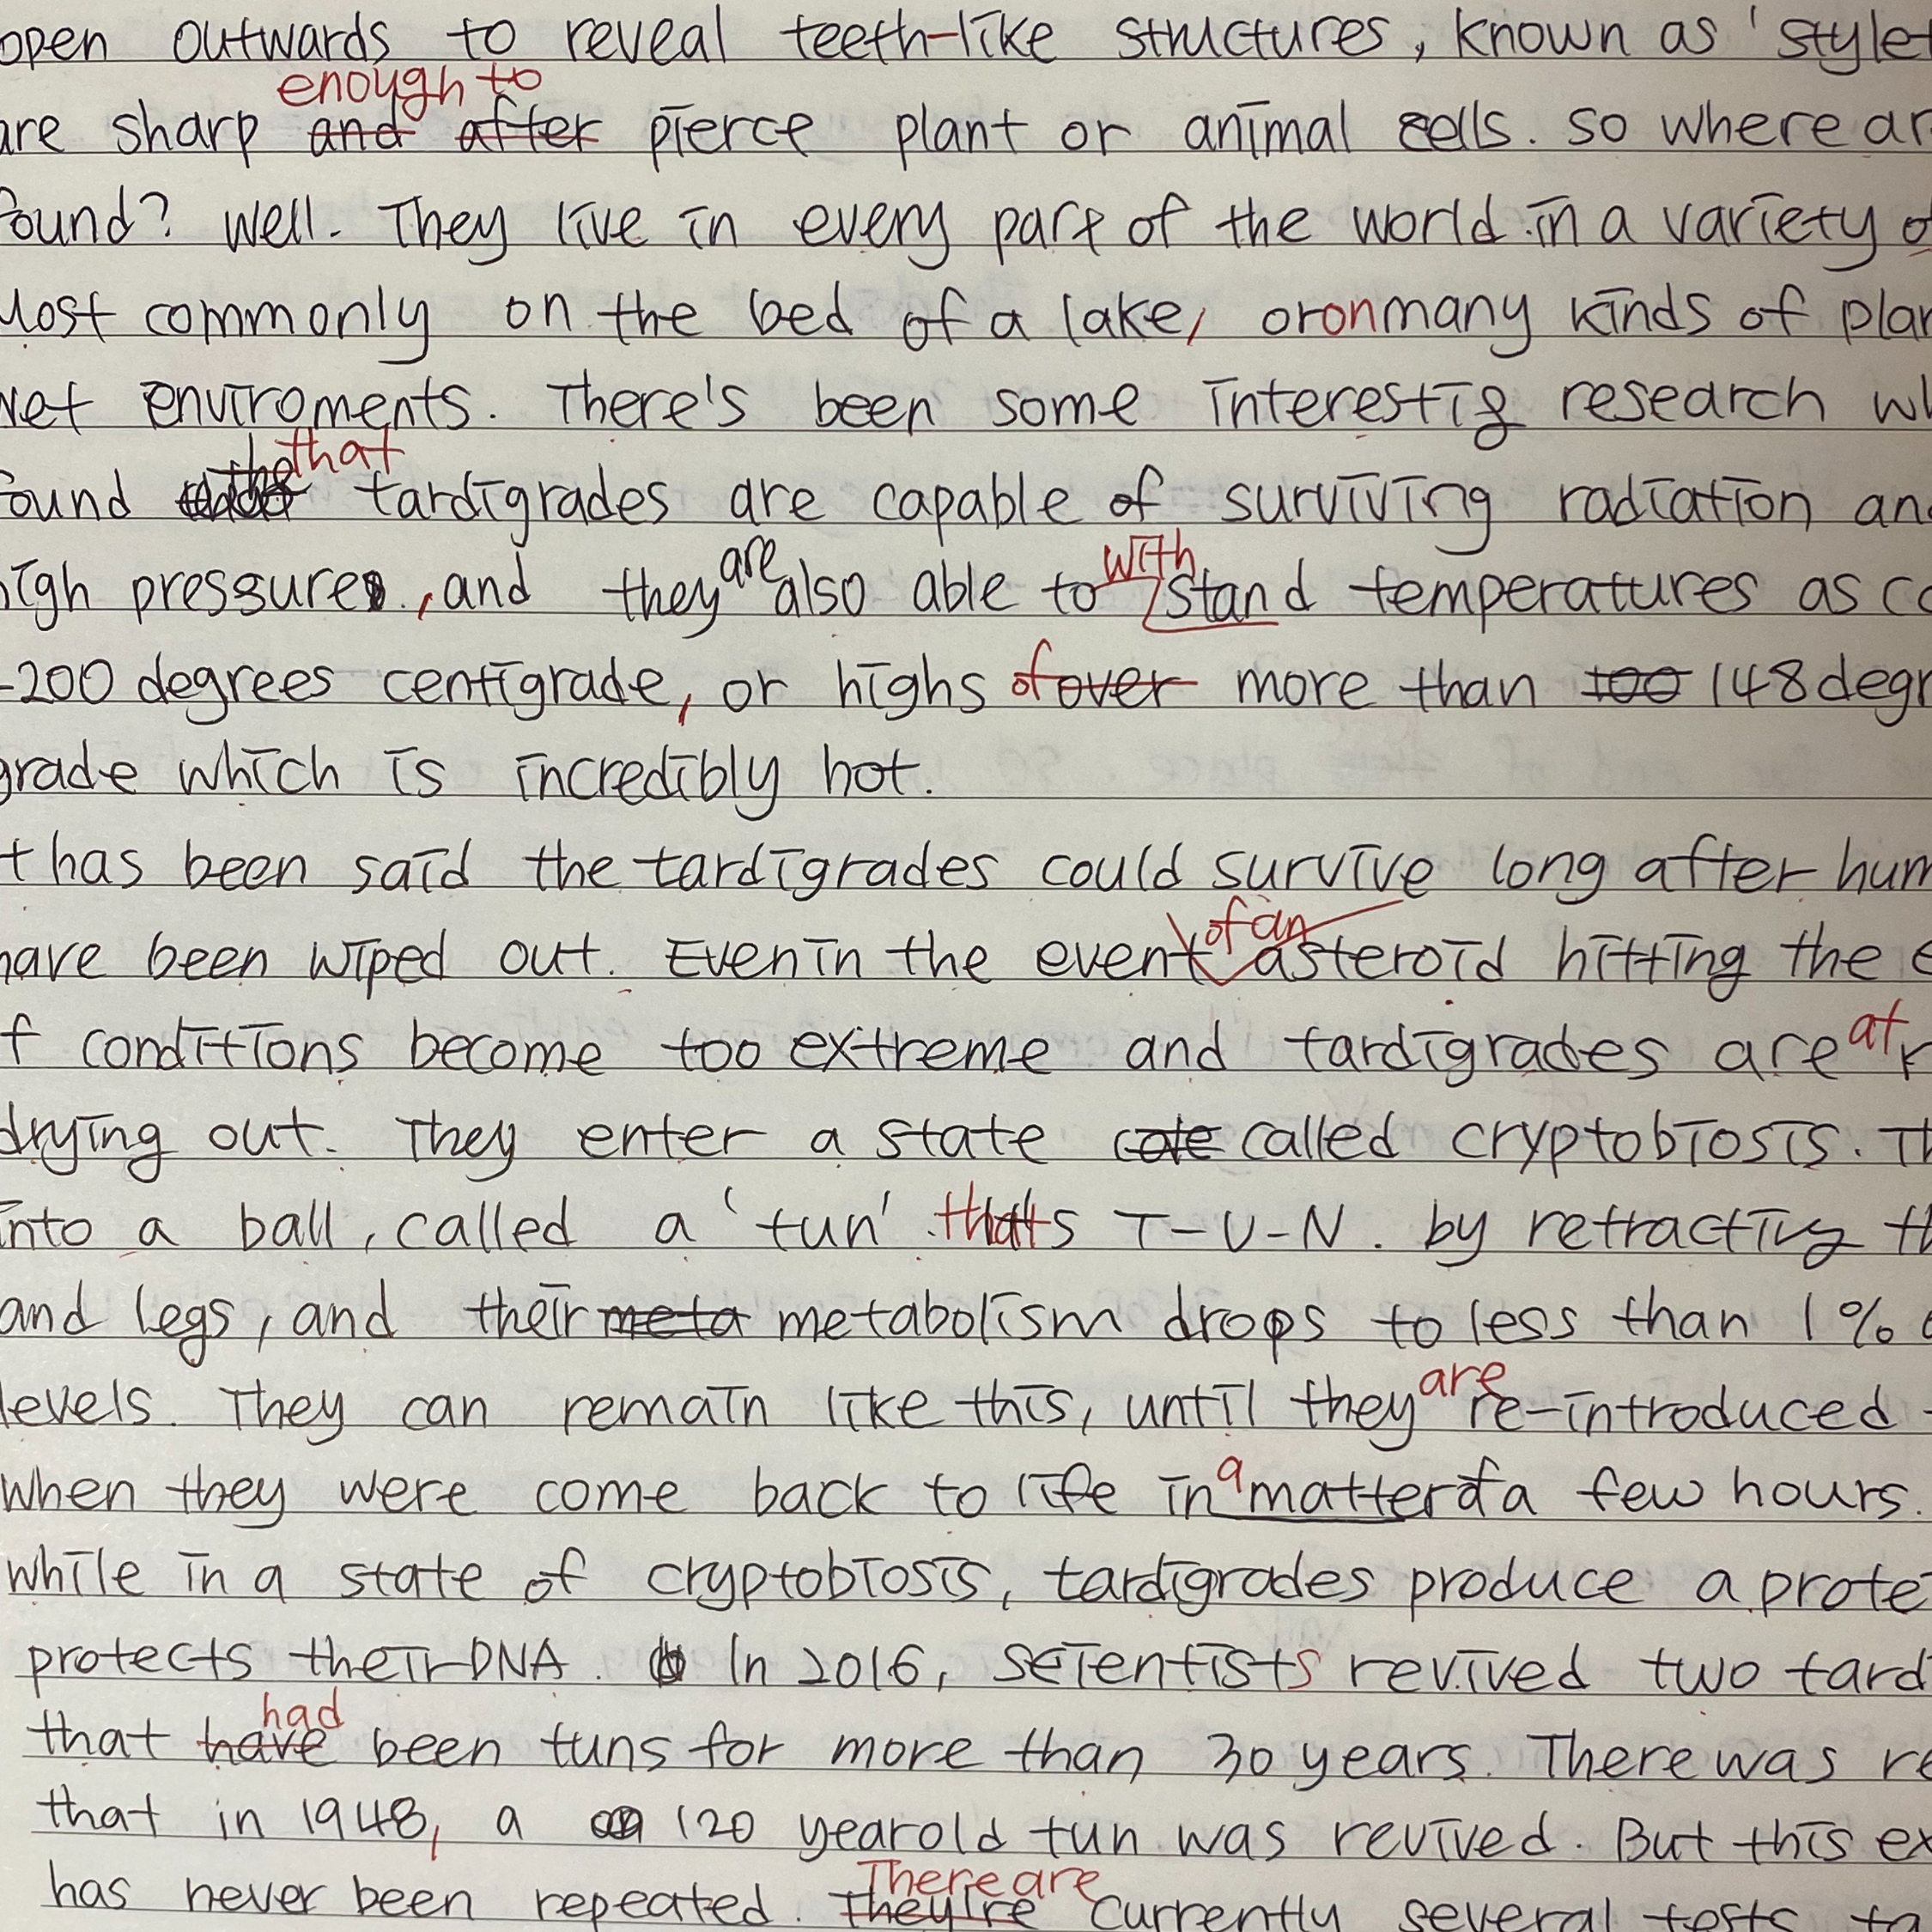 open outwards to reveal teeth-like structures, known as 'stylet
enough to
are sharp and after pierce plant or animal cells. so where ar
found? Well. They live in every part of the world in a variety o
Most commonly on the bed of a lake, or on many kinds of plan
wet enviroments. There's been some interestig research wh
that
found tardigrades are capable of surviving radiation and
are with
high pressure, and they also able to stand temperatures as co
-200 degrees centigrade, or highs of over more than too 148 degr
grade which is incredibly hot.
t has been said the tardigrades could survive long after hum
of an
have been wiped out. Even in the event asteroid hitting the e
at
f conditions become too extreme and tardigrades are r
drying out. They enter a state cate called cryptobiosis. Th
into a ball, called a 'tun' that's T-U-N. by retractivg th
and legs, and their meta metabolism drops to less than 1% o
are
levels. They can remain like this, until they re-introduced
a
when they were come back to life in matter of a few hours.
while in a state of cryptobiosis, tardigrades produce a protei
protects their DNA. In 2016, scientists revived two tardi
had
that have been tuns for more than 30 years. There was re
that in 1948, a 120 year old tun was revived. But this ex
There are
has never been repeated. they're currently several tests ta